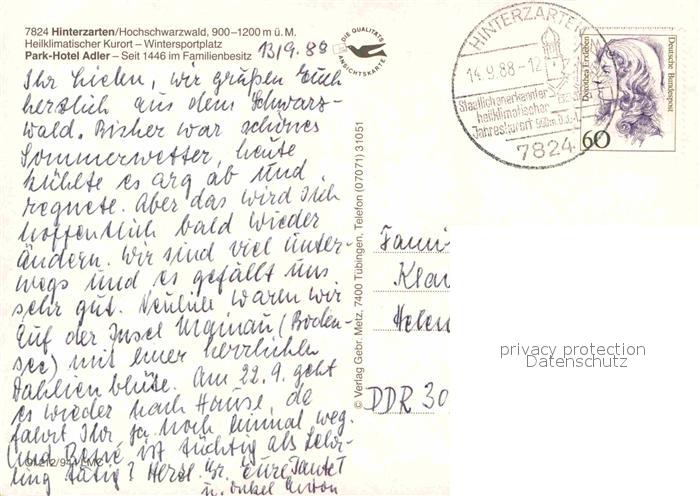 7824 Hinterzarten/Hochschwarzwald, 900–1200 m ü. M.
Heilklimatischer Kurort – Wintersportplatz
Park-Hotel Adler – Seit 1446 im Familienbesitz
13/9.88
Ihr Lieben, wir grüßen Euch
herzlich aus dem Schwarz-
wald. Bisher war schönes
Sommerwetter, heute
kühlte es arg ab und
regnete. Aber das wird sich
hoffentlich bald wieder
ändern. Wir sind viel unter-
wegs und es gefällt uns
sehr gut. Neulich waren wir
auf der Insel Mainau (Boden-
see) mit einer herrlichen
Dahlienblüte. Am 22.9. geht
es wieder nach Hause, da
fahrt Ihr ja noch einmal weg.
Und René ist tüchtig als Lehr-
ling tätig? Herzl. Gr. Eure Tante
u. Onkel Anton
DIE QUALITÄTS
ANSICHTSKARTE
© Verlag Gebr. Metz, 7400 Tübingen, Telefon (07071) 31051
HINTERZARTEN
14.9.88-12
Staatlich anerkannter
heilklimatischer
Jahreskurort
7824
Dorothea Erxleben
Deutsche Bundespost
60
Fami
Klau
Helen
DDR 30
privacy protection
Datenschutz